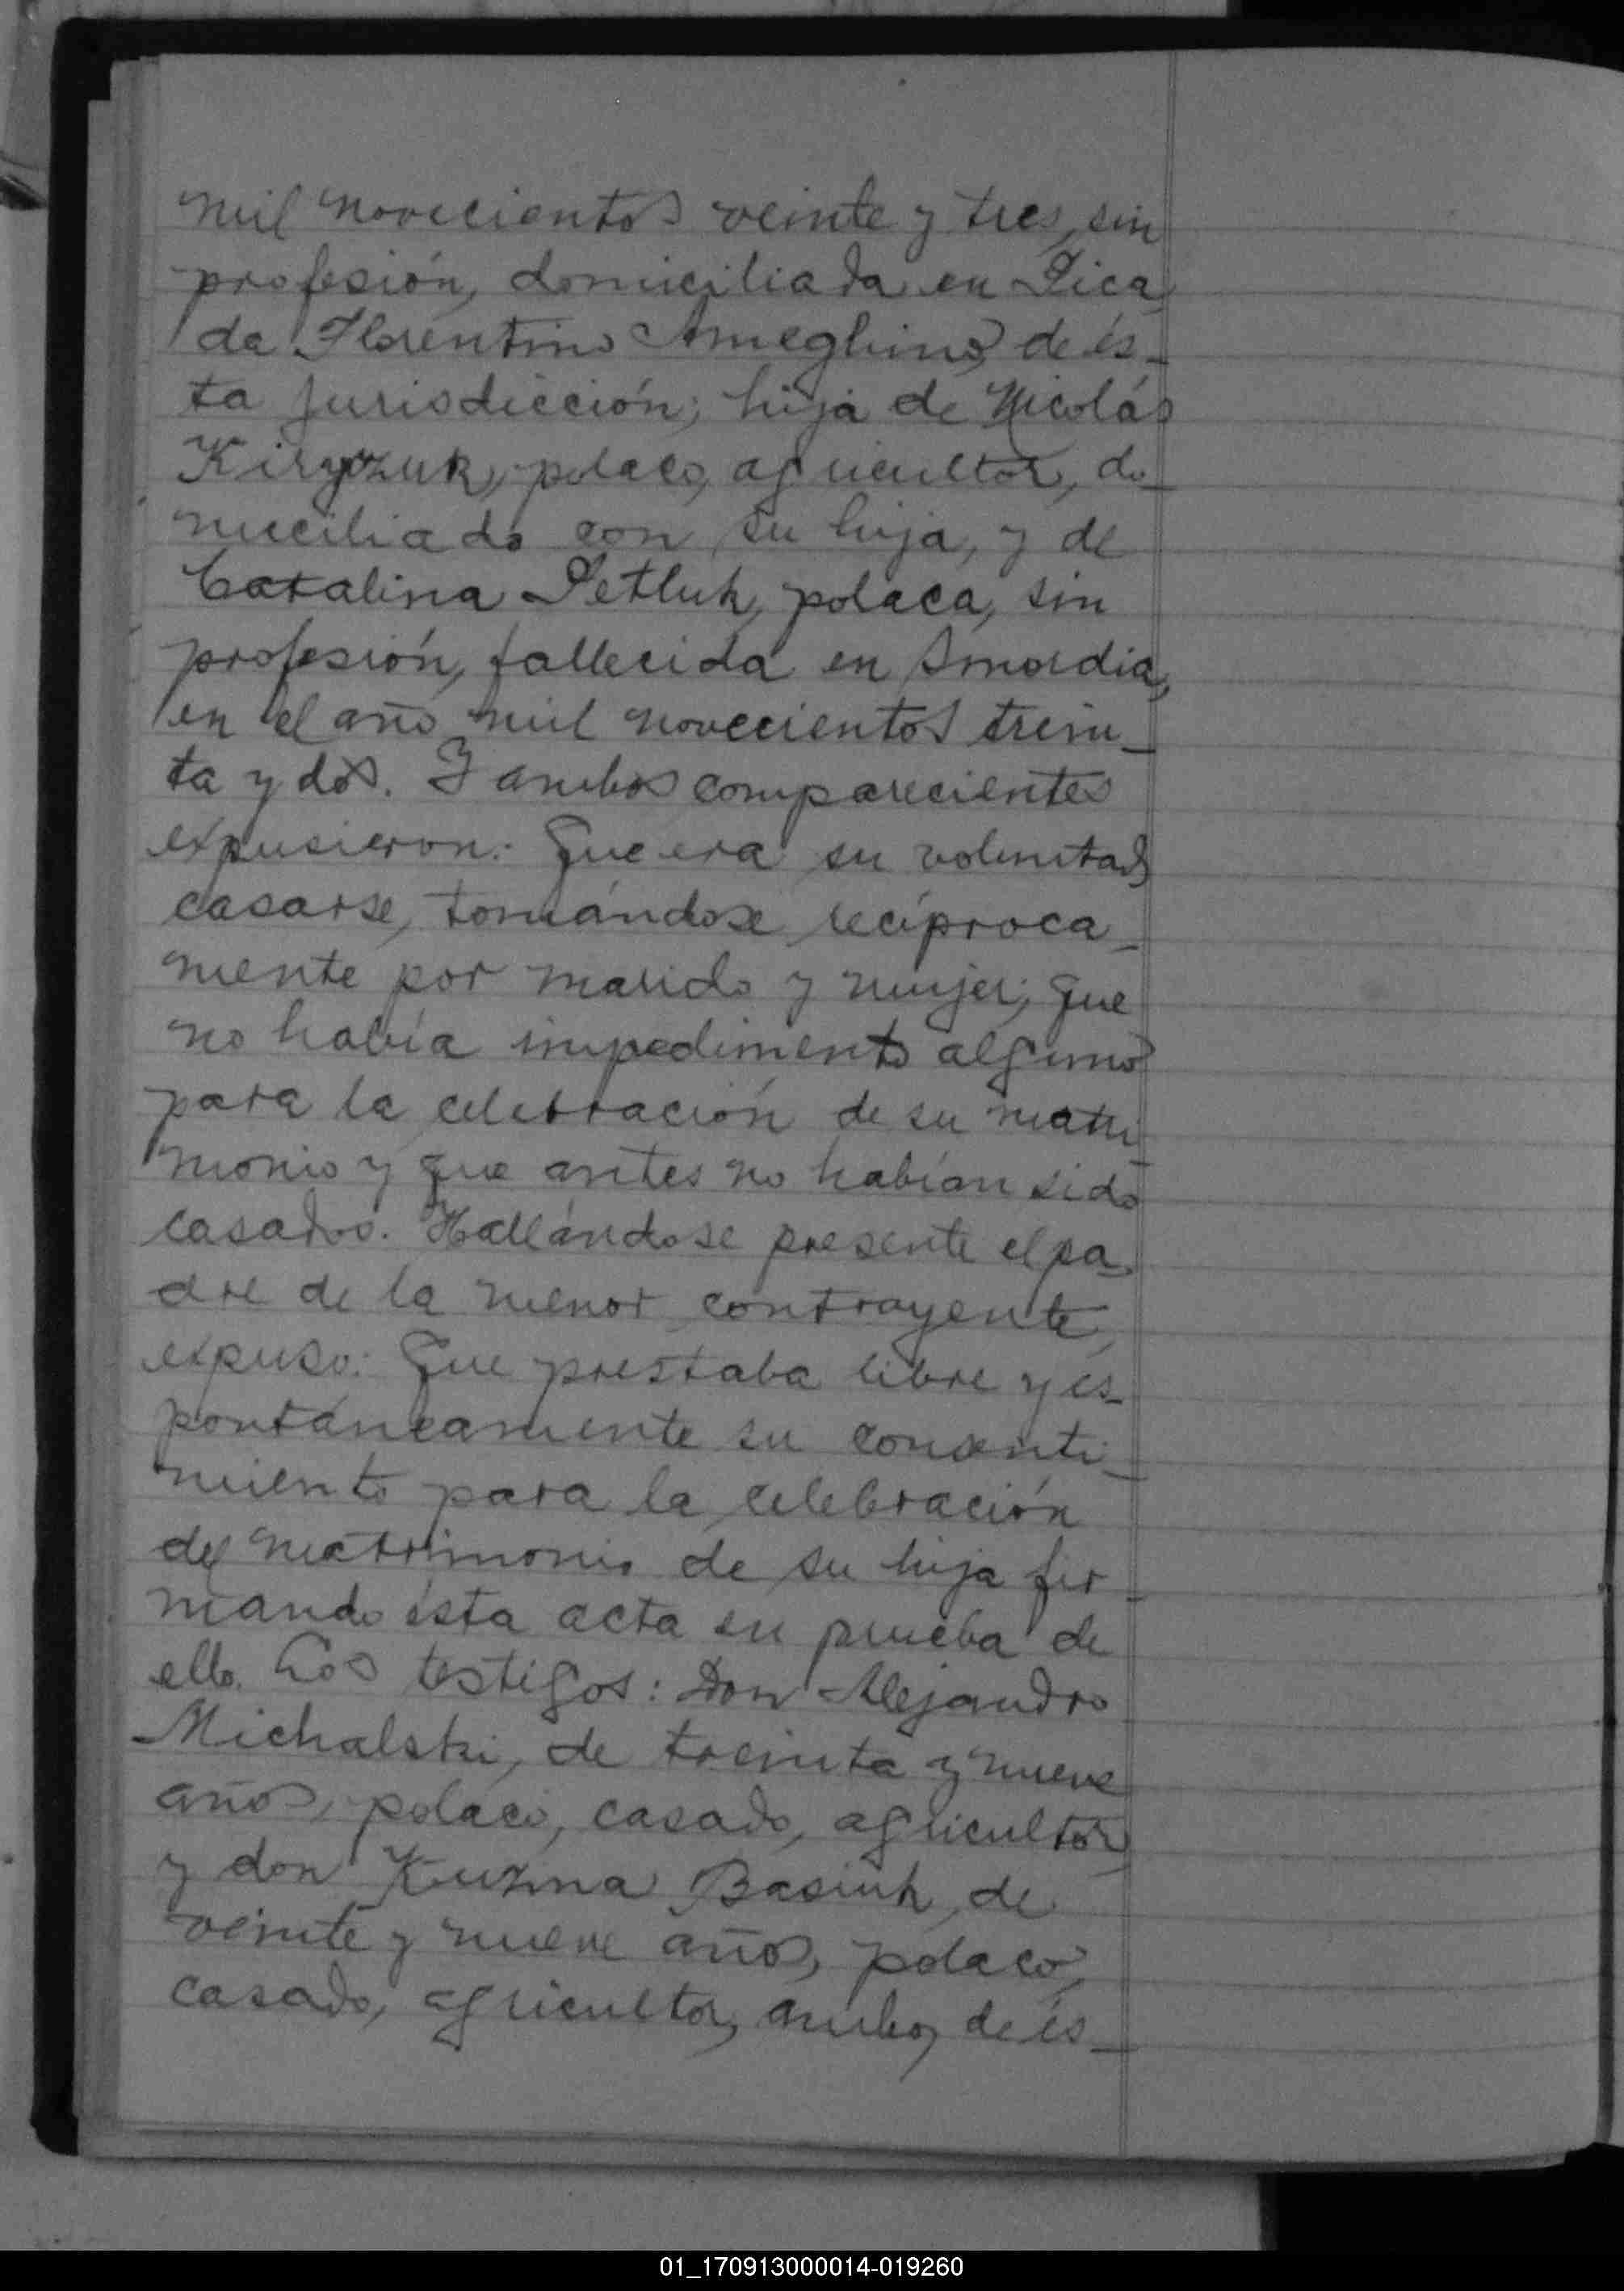 mil novecientos veinte y tres, sin
profesión, domiciliada en Pica
da Florentino Ameghino, de és_
ta jurisdicción; hija de Nicolás
Kiryczuk, polaco, agricultor, do_
miciliado con su hija, y de
Catalina Petluk, polaca, sin
profesión, fallecida en Smordia,
en el año mil novecientos trein_
ta y dos. Y ambos comparecientes
expusieron: Que era su voluntad
casarse, tomándose recíproca_
mente por marido y mujer; que
no había impedimento alguno
para la celebración de su matri_
monio y que antes no habían sido
casados. Hallándose presente el pa_
dre de la menor contrayente,
expuso: Que prestaba libre y es_
pontáneamente su consenti_
miento para la celebración
del matrimonio de su hija fir_
mando ésta acta en prueba de
ello. Los testigos: Don Alejandro
Michalski, de treinta y nueve
años, polaco, casado, agricultor,
y don Kuzma Basiuk, de
veinte y nueve años, polaco,
casado, agricultor, ambos de és_
01_170913000014-019260